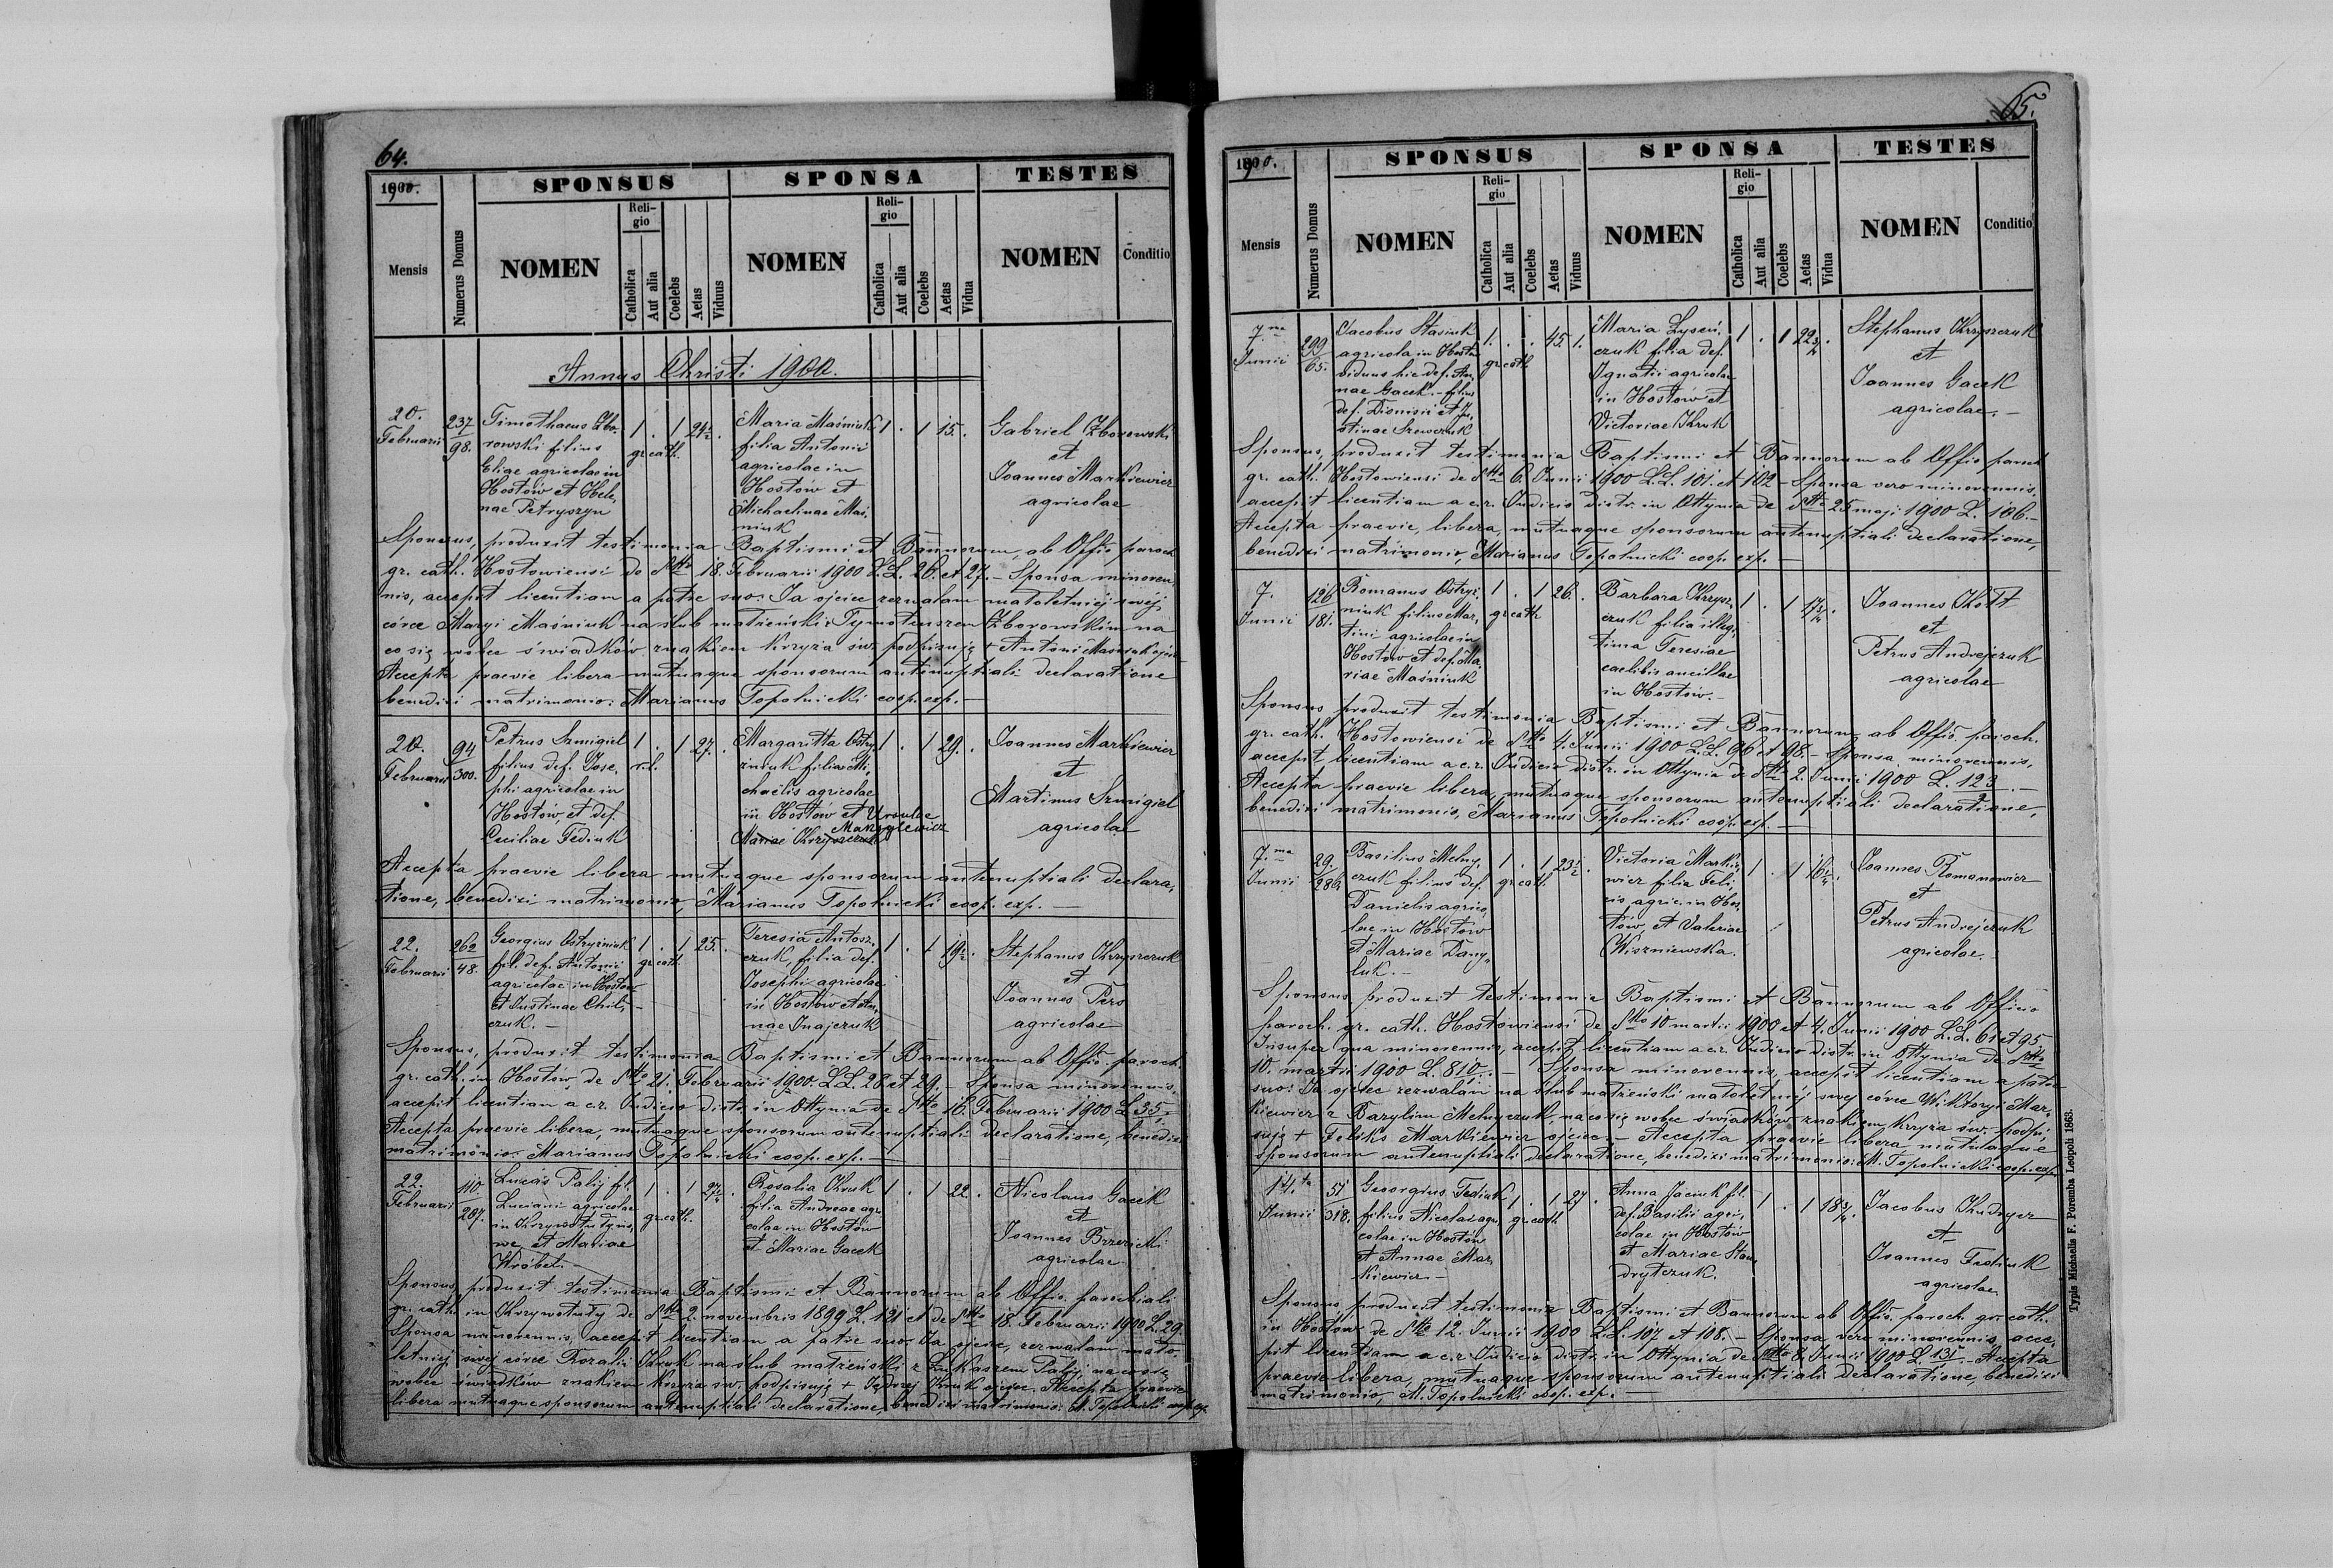 64.
1900.
SPONSUS
SPONSA
TESTES
Mensis
Numerus Domus
NOMEN
Religio
Catholica
Aut alia
Coelebs
Aetas
Viduus
NOMEN
Religio
Catholica
Aut alia
Coelebs
Aetas
Vidua
NOMEN
Conditio
Annus Christi 1900.
20. Februarii
237/98.
Timothaeus Zbo-
rowski filius
Eliae agricolae in
Hostów et Hele,
nae Petryszyn
1 . 1 24½ .
gr cath.
Maria Maśniuk
filia Antonii
agricolae in
Hostów et
Michaelinae Maś,
niuk
1 . 1 15. .
Gabriel Zborowski
et
Joannes Markiewicz
agricolae
Sponsus, produxit testimonia Baptismi et Bannorum, ab Offio paroch
gr. cath. Hostowiensi de dtto 18. Februarii 1900 L.L. 26. et 27. – Sponsa minoren-
nis, accepit licentiam a patre suo: Ja ojciec zezwalam małoletniéj swéj
córce Maryi Maśniuk na ślub małżeński z Tymoteuszem Zborowskim na
co się wobec świadków znakiem krzyża św. podpisuję + Antoni Maśniuk ojciec
Accepta praevie libera mutuaque sponsorum antenuptiali declaratione
benedixi matrimonio: Marianus Topolnicki coop. exp. –
20. Februarii
94/300.
Petrus Szmigiel
filius def. Jose,
phi agricolae in
Hostów, et def.
Ceciliae Fediuk
1 . 1 27. .
r.l.
Margaritta Ostry,
zniuk filia Mi,
chaëlis agricolae
in Hostów et Ursulae
Makysiewicz
Mariae Krzyszczuk
1 . 1 29. .
Joannes Markiewicz
et
Martinus Szmigiel
agricolae
Accepta praevie libera mutuaque sponsorum antenuptiali declara,
tione, benedixi matrimonio, Marianus Topolnicki coop. exp. –
22. Februarii
262/48.
Georgius Ostryżniuk
fil. def. Antonii
agricolae in Hostów
et Justinae Chil,
czuk. –
1 . 1 25. .
gr cath.
Teresia Antosz,
czuk, filia def.
Josephi agricolae
in Hostów et An,
nae Inajczuk
1 . 1 19½ .
Stephanus Krzyszczuk
et
Joannes Pers
agricolae
Sponsus, produxit testimonia Baptismi et Bannorum ab Offio paroch.
gr. cath. in Hostów de dtto 21. Februarii 1900. L.L. 28 et 29. – Sponsa minorennis
accepit licentiam a c.r. Judicio distr. in Ottynia de dtto 16. Februarii 1900 L 35,
Accepta praevie libera, mutuaque sponsorum antenuptiali declaratione, benedixi
matrimonio. Marianus Topolnicki coop. exp. –
22. Februarii
110./287.
Lucas Palij fil.
Luciani agricolae
in Krzywotuły no,
we, et Mariae
Wróbel. –
1 . 1 27½ .
gr cath.
Rosalia Kruk
filia Andreae agri
colae in Hostów
et Mariae Gacek
1 . 1 22. .
Nicolaus Gacek
et
Joannes Brzezicki
agricolae
Sponsus, produxit testimonia Baptismi et Bannorum ab Offio parochiali
gr. cath. in Krzywotuły de dtto 2. novembris 1899 L. 121 et de dtto 18. Februarii 1900 L. 29.
Sponsa minorennis, accepit licentiam a patre suo: Ja ojciec, zezwalam mało
letniéj swéj córce Rozalii Kruk na ślub małżeński z Łukaszem Palij, na co się
wobec świadków znakiem krzyża św. podpisuję + Jędrzej Kruk ojciec. Accepta praevie
libera mutuaque sponsorum antenuptiali declaratione, benedixi matrimonio: M. Topolnicki coop. exp.
65.
1900.
SPONSUS
SPONSA
TESTES
Mensis
Numerus Domus
NOMEN
Religio
Catholica
Aut alia
Coelebs
Aetas
Viduus
NOMEN
Religio
Catholica
Aut alia
Coelebs
Aetas
Vidua
NOMEN
Conditio
7.ma Junii
299/65.
Jacobus Stasiuk
agricola in Hostów
viduus hic def. An,
nae Gacek. – filius
def. Dionisii et Ju,
stinae Szewczuk
1. . . 45. 1.
gr cath
Maria Łysen,
czuk filia def.
Ignatii agricolae
in Hostów et
Victoriae Kruk
1 . 1 22¾ .
Stephanus Krzyszczuk
et
Joannes Gacek
agricolae. –
Sponsus, produxit testimonia Baptismi et Bannorum ab Offio paroch
gr. cath. Hostowiensi de dtto 6. Junii 1900 L.L. 101. et 102 – Sponsa vero minorennis,
accepit licentiam a c.r. Judicio distr. in Ottynia de dtto 25 maji 1900 L. 106. –
Accepta praevie, libera, mutuaque sponsorum antenuptiali declaratione,
benedixi matrimonio, Marianus Topolnicki coop. exp. –
7. Junii
126/181.
Romanus Ostryż,
niuk filius Mar,
tini agricolae in
Hostów et def. Ma,
riae Maśniuk
1 . 1 26. .
gr cath
Barbara Krzysz,
czuk filia illegi,
tima Teresiae
caelibis ancillae
in Hostów. –
1 . 1 17¾ .
Joannes Kott
et
Petrus Andrejczuk
agricolae
Sponsus produxit testimonia Baptismi et Bannorum ab Offio. paroch.
gr. cath. Hostowiensi de dtto 4. Junii 1900 L.L. 96 et 98. – Sponsa, minorennis,
accepit licentiam a c.r. Judicio distr. in Ottynia de dtto 2. Junii 1900 L. 123. –
Accepta praevie libera, mutuaque sponsorum antenuptiali declaratione,
benedixi matrimonio, Marianus Topolnicki coop. exp. –
7.ma Junii
29./286.
Basilius Melny,
czuk filius def.
Danielis agrico,
lae in Hostów
et Mariae Dany,
luk. –
1 . 1 23½ .
gr cath
Victoria Markie,
wicz filia Feli,
cis agric. in Hos,
tów, et Valeriae
Wiszniewska.
1 . 1 16¼ .
Joannes Romanowicz
et
Petrus Andrejczuk
agricolae. –
Sponsus produxit testimonia Baptismi et Bannorum ab Officio
paroch. gr. cath. Hostowiensi de dtto 10 martii 1900 et 4. Junii 1900 L.L. 61 et 95
Insuper qua minorennis, accepit licentiam a c.r. Judicio distr. in Ottynia de dtto
10. martii 1900 L. 810. – Sponsa minorennis, accepit licentiam a patre
suo: Ja ojciec zezwalam na ślub małżeński małoletniéj swej córce Wiktoryi Mar,
kiewicz z Bazylim Melnyczuk, na co się wobec świadków znakiem krzyża św. podpi,
suję + Feliks Markiewicz ojciec. – Accepta praevie libera mutuaque
sponsorum antenuptiali declaratione, benedixi matrimonio: M. Topolnicki coop. exp.
14.ta Junii
51/318.
Georgius Fediuk
filius Nicolai agri,
colae in Hostów
et Annae Mar,
kiewicz. –
1 . 1 27 .
gr cath
Anna Jaciuk fil.
def. Basilii agri,
colae in Hostów
et Mariae Stan,
drytczuk.
1 . 1 18¾ .
Jacobus Kudryez
et
Joannes Fediuk
agricolae
Sponsus, produxit testimonia Baptismi et Bannorum ab Offio. paroch gr. cath.
in Hostów de dtto 12. Junii 1900 L.L. 107 et 108. – Sponsa vero minorennis acce,
pit licentiam a c.r. Judicio distr. in Ottynia de dtto 8. Junii 1900 L. 135. – Accepta
praevie libera, mutuaque sponsorum antenuptiali declaratione, benedixi
matrimonio, M. Topolnicki coop. exp. –
Typis Michaelis F. Poremba Leopoli 1868.